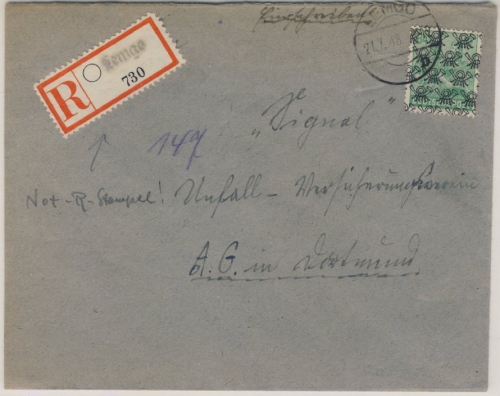 Einschreiben!
LEMGO
21.7.48
b
R
Lemgo
730
147
"Signal"
Not-R-Stempel!
Unfall-Versicherungsverein
A.G. in Dortmund